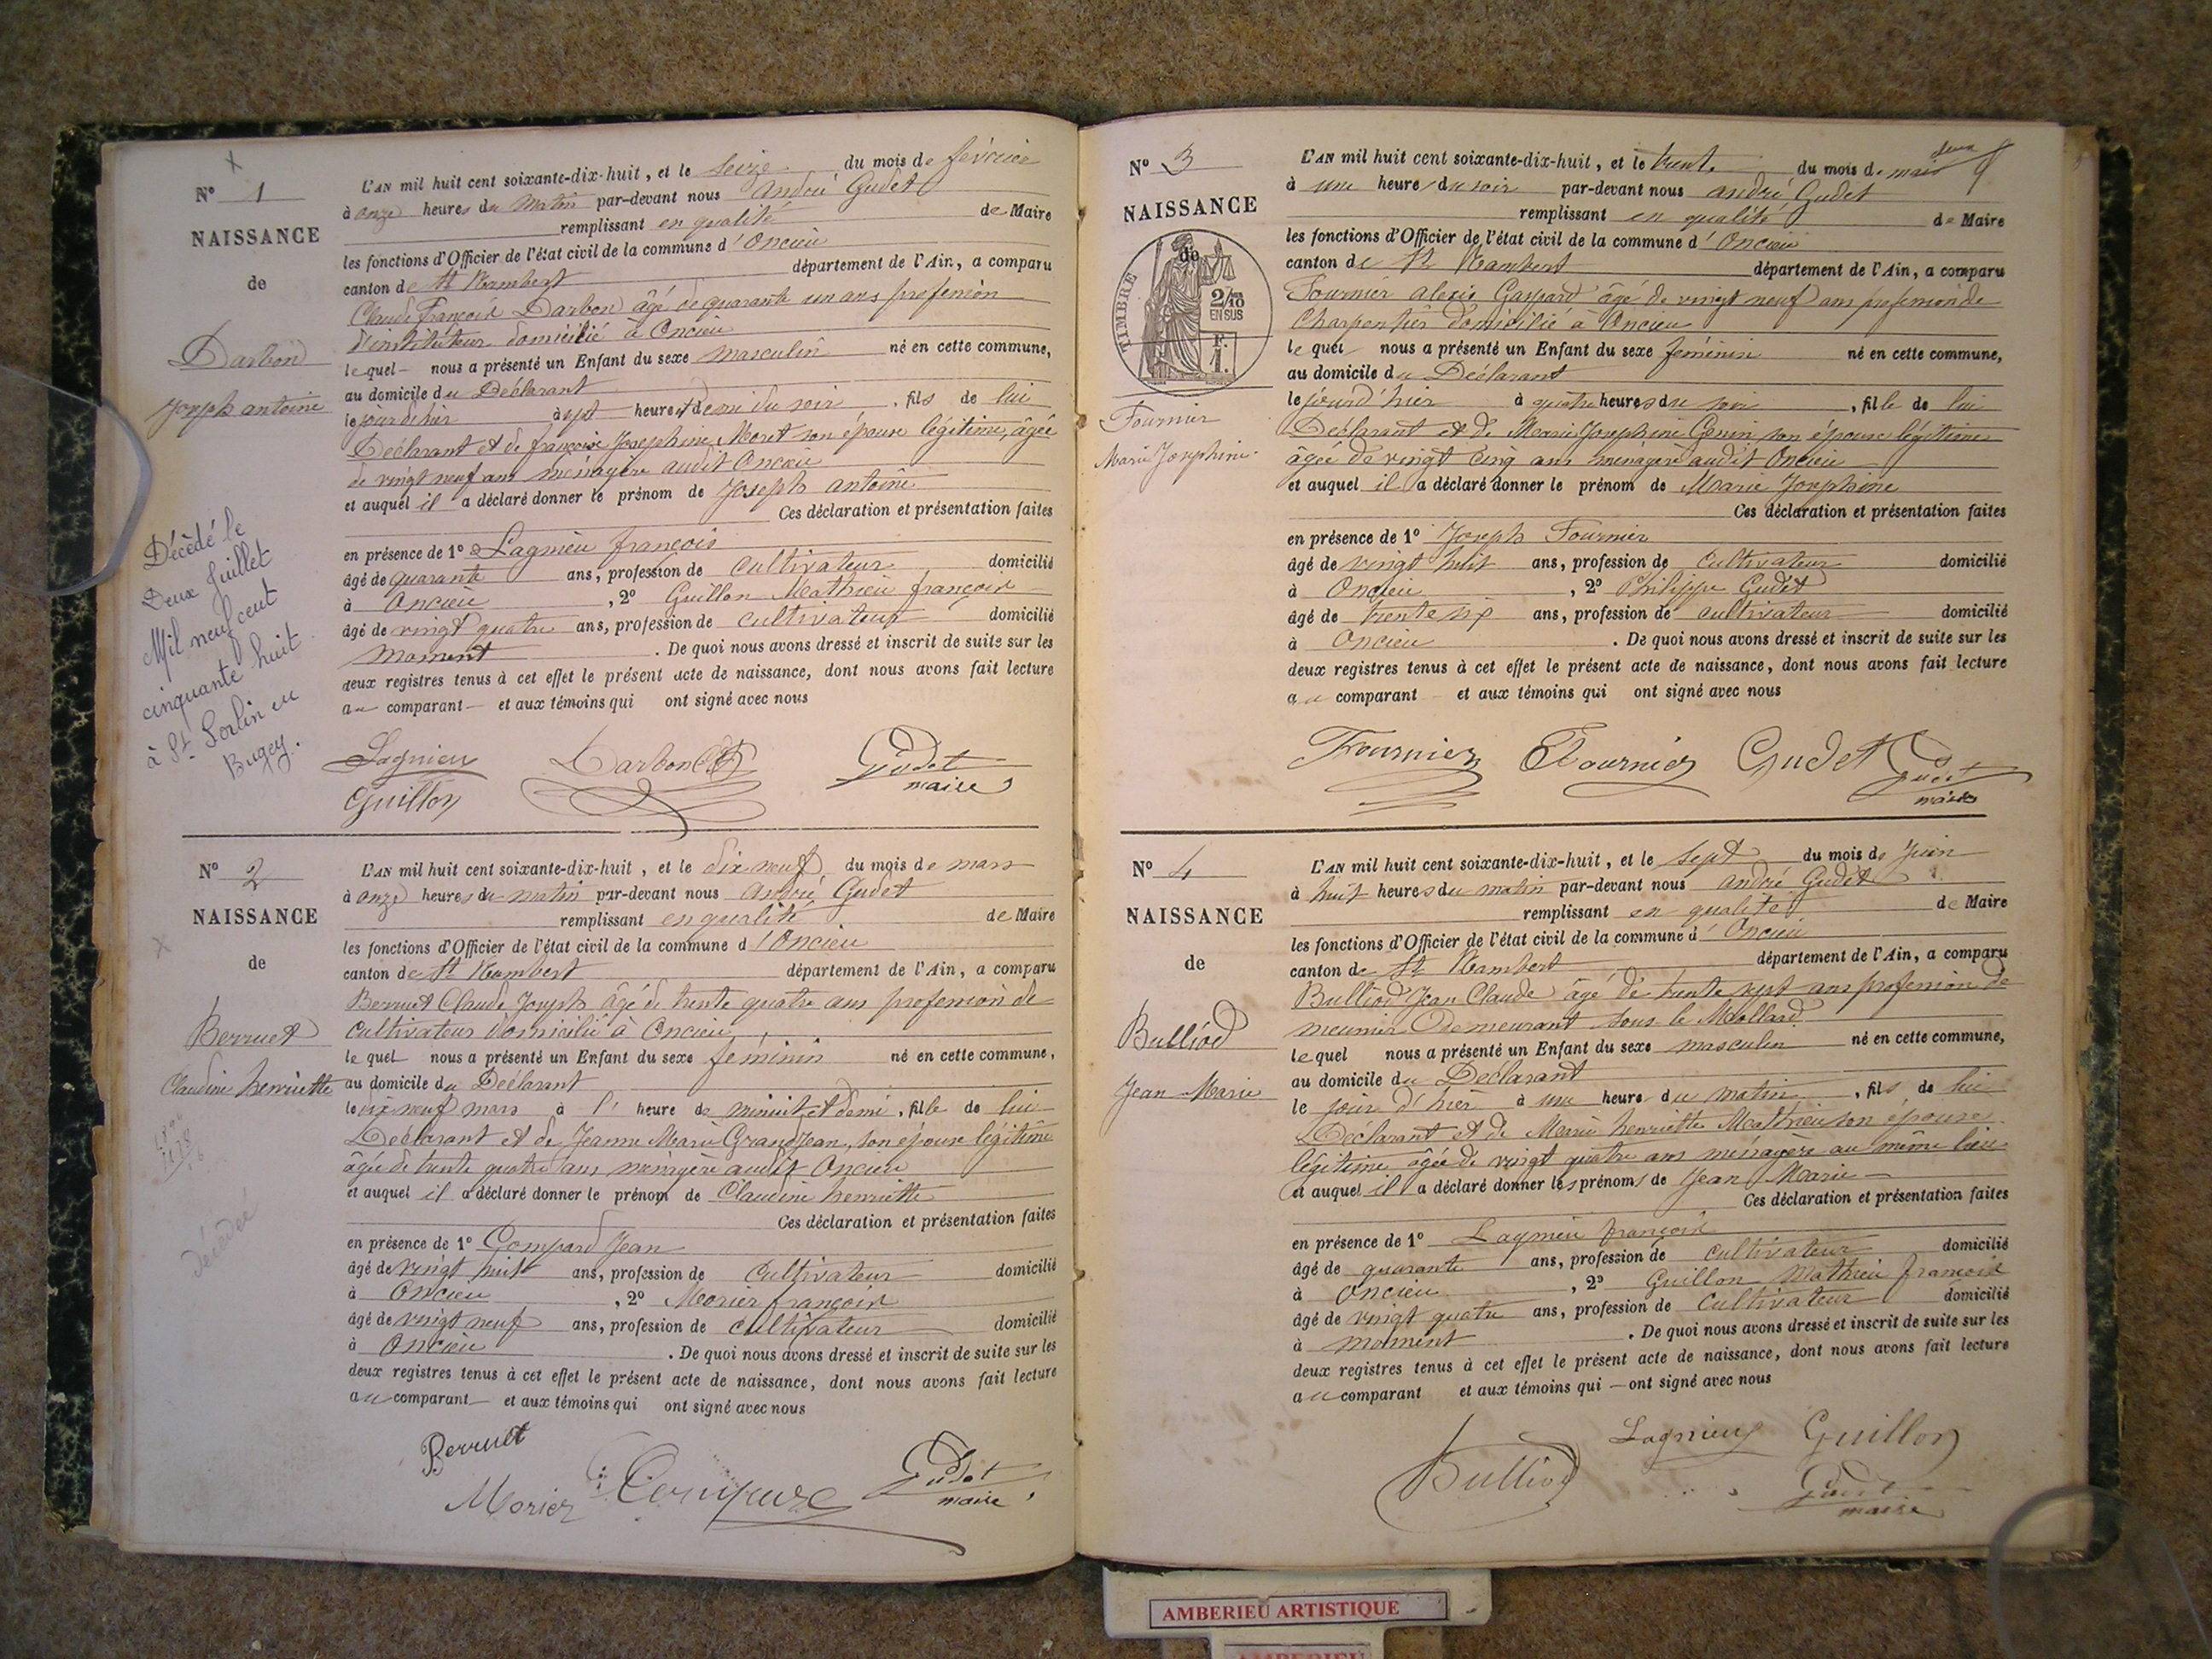 N° 1
NAISSANCE
de
Darbon
Joseph antoine
Décédé le
Deux Juillet
Mil neuf cent
cinquante huit
à St Sorlin en
Bugey.
L'AN mil huit cent soixante-dix-huit, et le seize du mois de février
à onze heures du matin par-devant nous André Gudet
remplissant en qualité de Maire
les fonctions d'Officier de l'état civil de la commune d'Oncieu
canton de St Rambert département de l'Ain, a comparu
Claude François Darbon âgé de quarante un ans profession
d'instituteur domicilié à Oncieu
lequel nous a présenté un Enfant du sexe masculin né en cette commune,
au domicile du Déclarant
le jour d'hier à sept heures et demi du soir, fils de lui
Déclarant et de françoise Josephine Moret son épouse légitime, âgée
de vingt neuf ans ménagère audit Oncieu
et auquel il a déclaré donner le prénom de Joseph antoine
Ces déclaration et présentation faites
en présence de 1° Lagnieu françois
âgé de quarante ans, profession de cultivateur domicilié
à Oncieu, 2° Guillon Mathieu françois
âgé de vingt quatre ans, profession de cultivateur domicilié
à moment. De quoi nous avons dressé et inscrit de suite sur les
deux registres tenus à cet effet le présent acte de naissance, dont nous avons fait lecture
au comparant et aux témoins qui ont signé avec nous
Lagnieu Darbon Gudet
Guillon maire
N° 2
NAISSANCE
de
Berruet
Claudine henriette
décédée
L'AN mil huit cent soixante-dix-huit, et le dix neuf du mois de mars
à onze heures du matin par-devant nous André Gudet
remplissant en qualité de Maire
les fonctions d'Officier de l'état civil de la commune d'Oncieu
canton de St Rambert département de l'Ain, a comparu
Berruet Claude Joseph âgé de trente quatre ans profession de
cultivateur domicilié à Oncieu
lequel nous a présenté un Enfant du sexe féminin né en cette commune,
au domicile du Déclarant
le dix neuf mars à l'heure de minuit et demi, fille de lui
Déclarant et de Jeanne Marie Grandjean, son épouse légitime
âgée de trente quatre ans ménagère audit Oncieu
et auquel il a déclaré donner le prénom de Claudine henriette
Ces déclaration et présentation faites
en présence de 1° Compard Jean
âgé de vingt huit ans, profession de cultivateur domicilié
à Oncieu, 2° Morier françois
âgé de vingt neuf ans, profession de cultivateur domicilié
à Oncieu. De quoi nous avons dressé et inscrit de suite sur les
deux registres tenus à cet effet le présent acte de naissance, dont nous avons fait lecture
au comparant et aux témoins qui ont signé avec nous
Berruet Gudet
Morier maire
N° 3
NAISSANCE
de
TIMBRE
2/10
EN SUS
F.
1.
Fournier
Marie Josephine
L'AN mil huit cent soixante-dix-huit, et le trente du mois de mars
à une heure du soir par-devant nous andré Gudet
remplissant en qualité de Maire
les fonctions d'Officier de l'état civil de la commune d'Oncieu
canton de St Rambert département de l'Ain, a comparu
Fournier alexis Gaspard âgé de vingt neuf ans profession de
Charpentier domicilié à Oncieu
le quel nous a présenté un Enfant du sexe féminin né en cette commune,
au domicile du Déclarant
le jourd'hier à quatre heures du soir, fille de lui
Déclarant et de Marie Josephine Genin son épouse légitime
âgée de vingt cinq ans ménagère audit Oncieu
et auquel il a déclaré donner le prénom de Marie Josephine
Ces déclaration et présentation faites
en présence de 1° Joseph Fournier
âgé de vingt huit ans, profession de cultivateur domicilié
à Oncieu, 2° Philippe Gudet
âgé de trente six ans, profession de cultivateur domicilié
à Oncieu. De quoi nous avons dressé et inscrit de suite sur les
deux registres tenus à cet effet le présent acte de naissance, dont nous avons fait lecture
au comparant et aux témoins qui ont signé avec nous
Fournier Fournier Gudet Gudet
maire
N° 4
NAISSANCE
de
Bulliod
Jean Marie
L'AN mil huit cent soixante-dix-huit, et le sept du mois de Juin
à huit heures du matin par-devant nous andré Gudet
remplissant en qualité de Maire
les fonctions d'Officier de l'état civil de la commune d'Oncieu
canton de St Rambert département de l'Ain, a comparu
Bulliod Jean Claude âgé de trente sept ans profession de
meunier Demeurant sous le Mollard
lequel nous a présenté un Enfant du sexe masculin né en cette commune,
au domicile du Déclarant
le jour d'hier à une heure du matin, fils de lui
Déclarant et de Marie henriette Mathieu son épouse
légitime âgée de vingt quatre ans ménagère au même lieu
et auquel il a déclaré donner les prénoms de Jean Marie
Ces déclaration et présentation faites
en présence de 1° Lagnieu françois
âgé de quarante ans, profession de cultivateur domicilié
à Oncieu, 2° Guillon Mathieu françois
âgé de vingt quatre ans, profession de cultivateur domicilié
à moment. De quoi nous avons dressé et inscrit de suite sur les
deux registres tenus à cet effet le présent acte de naissance, dont nous avons fait lecture
au comparant et aux témoins qui ont signé avec nous
Lagnieu Guillon
Bulliod Gudet
maire
AMBERIEU ARTISTIQUE
AMBERIEU